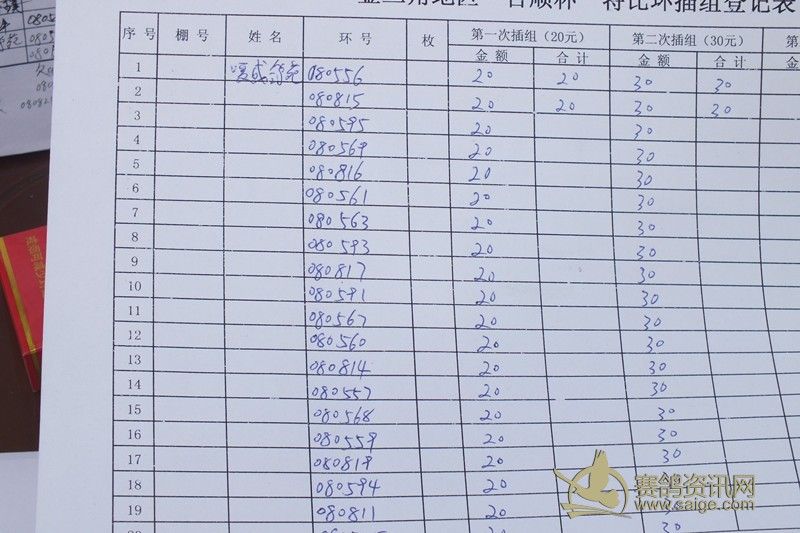 百顺杯 特比环插组登记表
序号 棚号 姓名 环号 枚 第一次插组（20元） 第二次插组（30元） 第
金额 合计 金额 合计 金
1 080556 20 20 30 30
2 080815 20 20 30 30
3 080595 20 30
4 080569 20 30
5 080816 20 30
6 080561 20 30
7 080563 20 30
8 080593 20 30
9 080817 20 30
10 080591 20 30
11 080567 20 30
12 080560 20 30
13 080814 20 30
14 080557 20 30
15 080568 20 30
16 080559 20 30
17 080819 20 30
18 080594 20
19 080811 20 30
赛鸽资讯网
www.saige.com